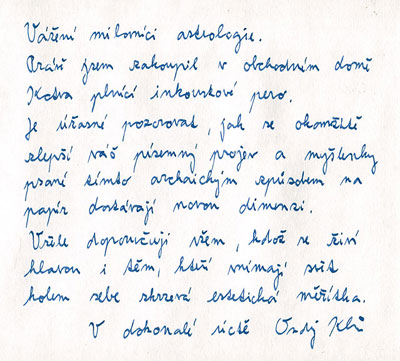 Vážení milovníci astrologie.
Právě jsem zakoupil v obchodním domě
Kotva plnící inkoustové pero.
Je úžasné pozorovat, jak se okamžitě
zlepší váš písemný projev a myšlenky
psané tímto archaickým způsobem na
papír dostávají novou dimenzi.
Vřele doporučuji všem, kdož se živí
hlavou i těm, kteří vnímají svět
kolem sebe skrzevá estetická měřítka.
V dokonalé úctě